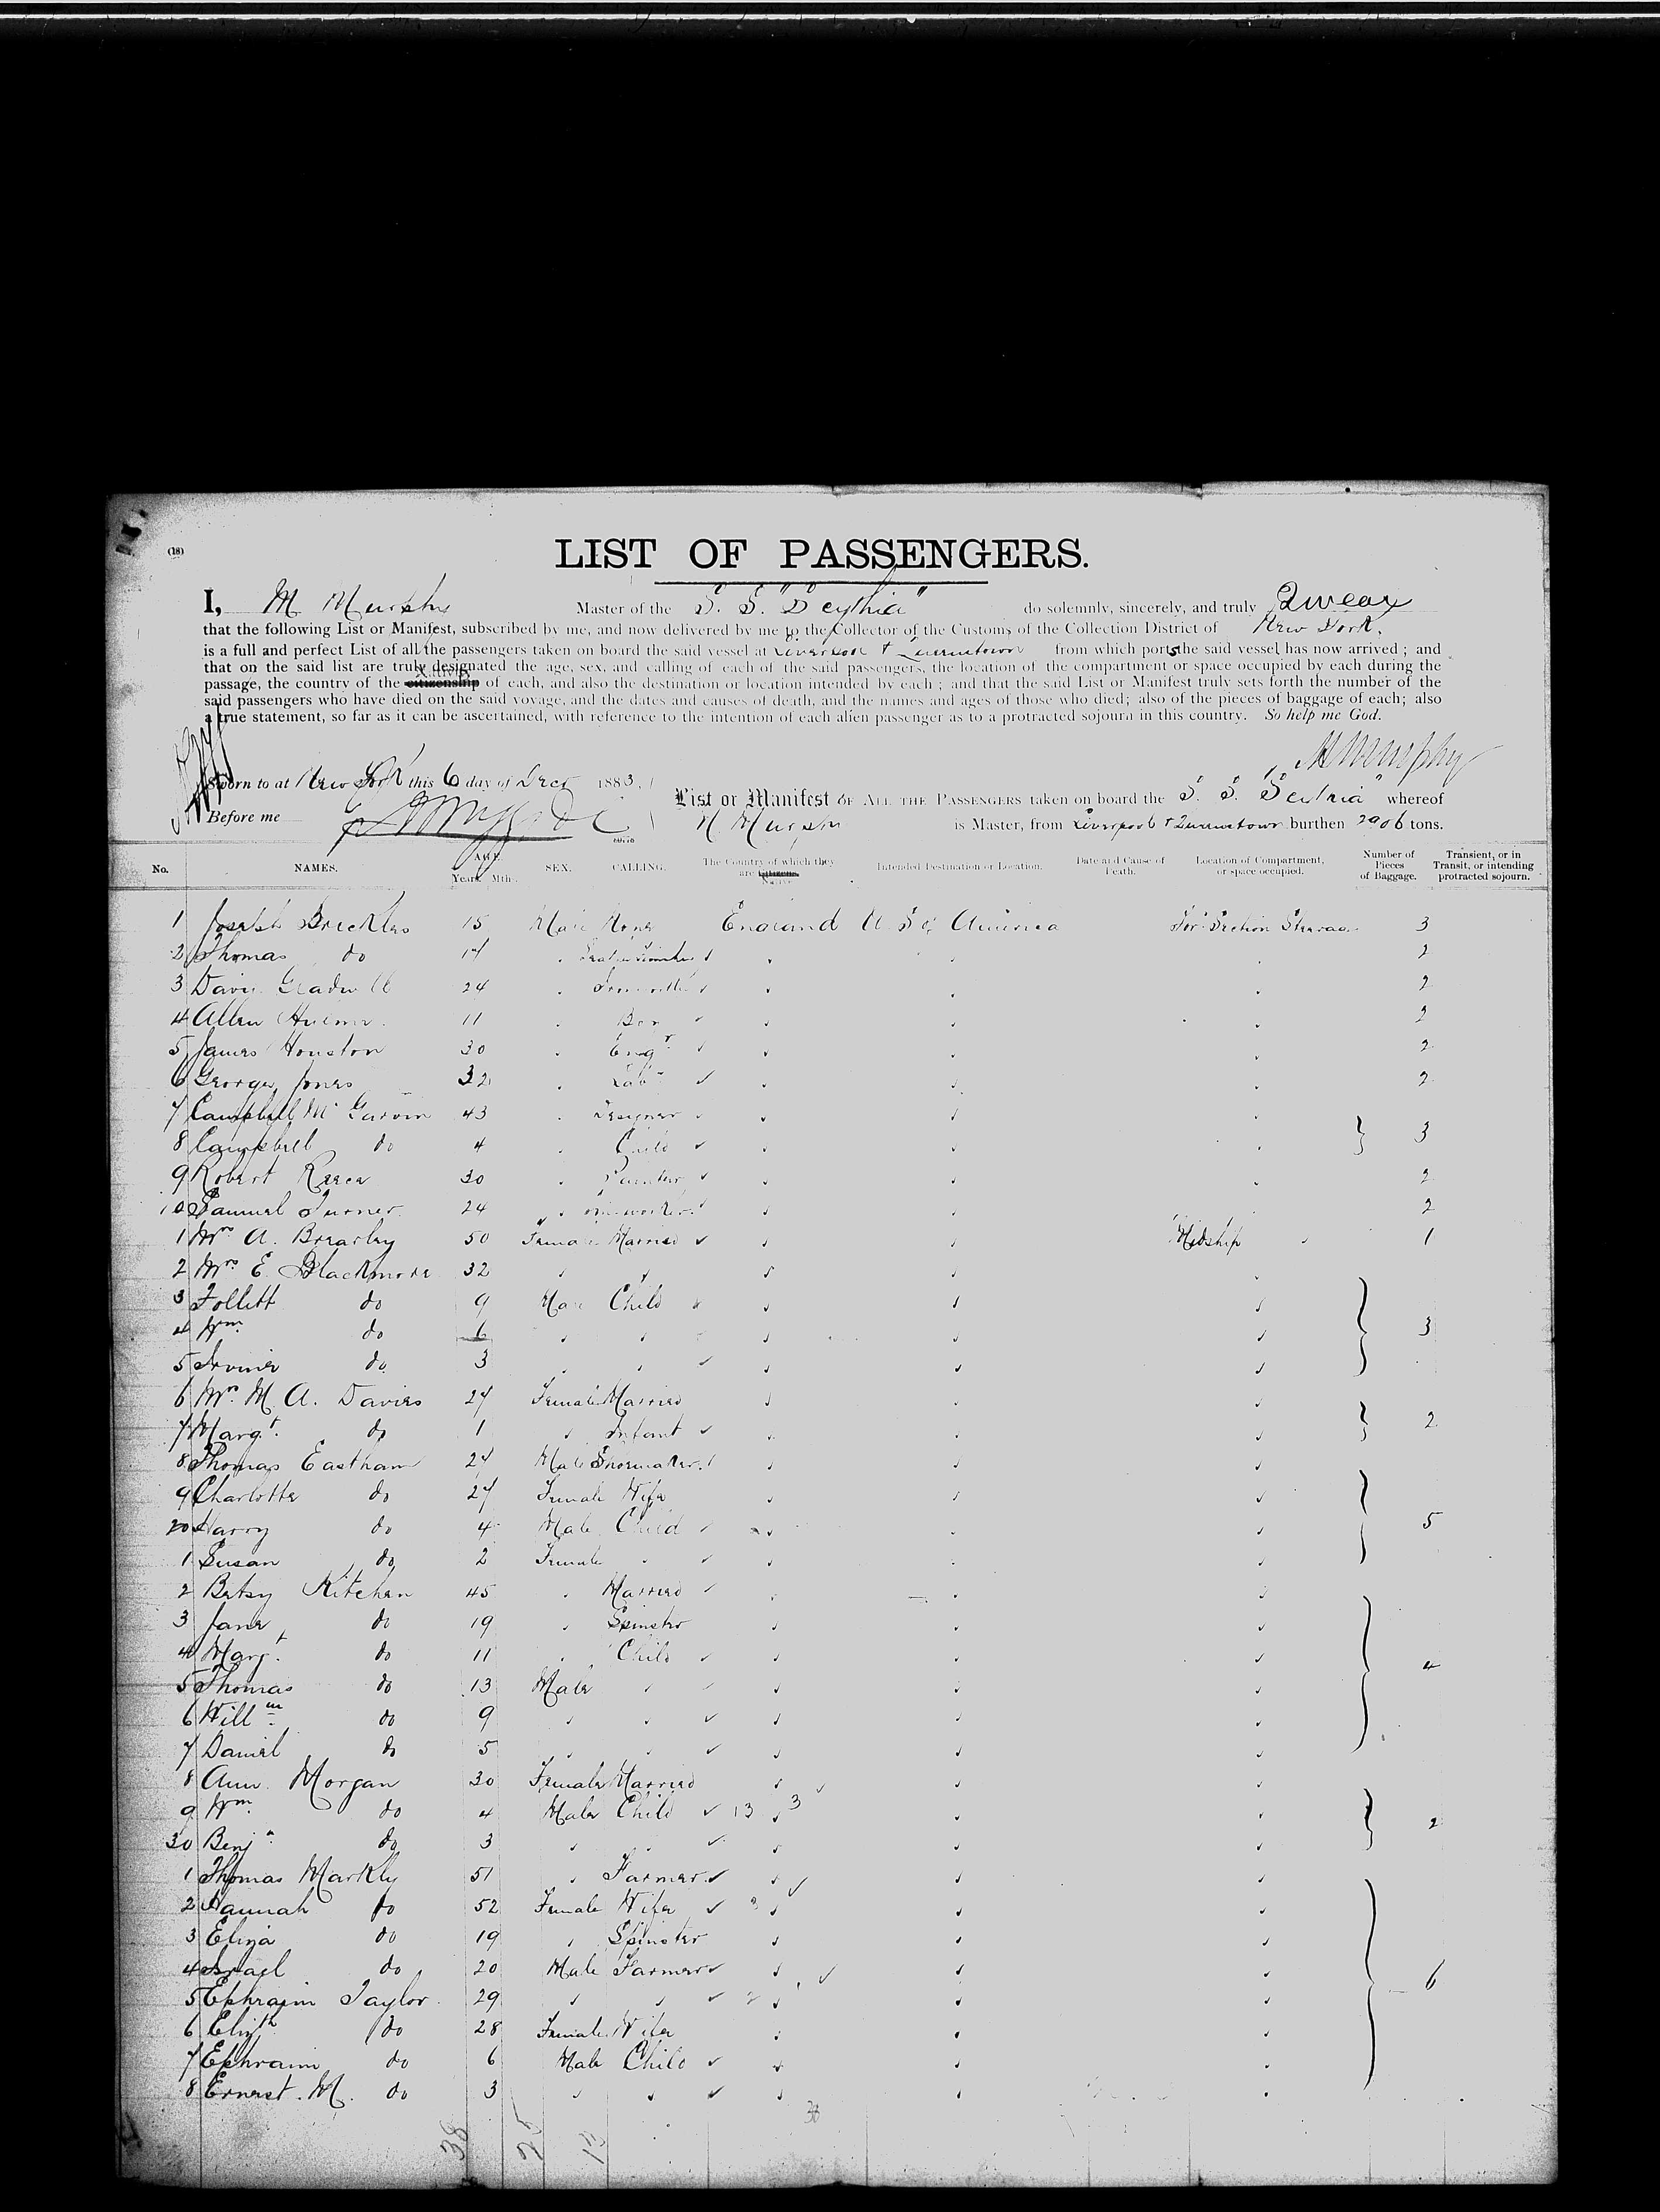 (18)
LIST OF PASSENGERS.
I, M Murphy Master of the S. S. "Scythia" do solemnly, sincerely, and truly Swear
that the following List or Manifest, subscribed by me, and now delivered by me to the Collector of the Customs of the Collection District of New York.
is a full and perfect List of all the passengers taken on board the said vessel at Liverpool & Queenstown from which ports the said vessel has now arrived; and
that on the said list are truly designated the age, sex, and calling of each of the said passengers, the location of the compartment or space occupied by each during the
passage, the country of the citizenship of each, and also the destination or location intended by each; and that the said List or Manifest truly sets forth the number of the
said passengers who have died on the said voyage, and the dates and causes of death, and the names and ages of those who died; also of the pieces of baggage of each; also
a true statement, so far as it can be ascertained, with reference to the intention of each alien passenger as to a protracted sojourn in this country. So help me God.
M Murphy
Sworn to at New York this 6 day of Decr 1883.
List or Manifest OF ALL THE PASSENGERS taken on board the S. S. "Scythia" whereof
Before me
M. Murphy is Master, from Liverpool & Queenstown burthen 2906 tons.
No. NAMES. AGE. Years. Mths. SEX. CALLING. The Country of which they are Citizens. Native Intended Destination or Location. Date and Cause of Death. Location of Compartment, or space occupied. Number of Pieces of Baggage. Transient, or in Transit, or intending protracted sojourn.
1 Joseph Brickles 15 Male None England U. S. of America For Section Steerage 3
2 Thomas do 14 2
3 David Gradwell 24 2
4 Allen Hulme 11 Boy 2
5 James Houston 30 Engr 2
6 George Jones 32 Labr 2
7 Campbell Mc Garvin 43 Designer
8 Campbell do 4 Child 3
9 Robert Reece 30 Painter 2
10 Samuel Turner 24 2
1 Mrs A. Brearley 50 Female Married Midship 1
2 Mrs E. Blackmore 32
3 Follett do 9 Male Child
4 Wm do 6 3
5 do 3
6 Mrs M. A. Davies 27 Female Married
7 Margt. do 1 Infant 2
8 Thomas Eastham 27 Male Shoemaker
9 Charlotte do 27 Female Wife
20 Harry do 4 Male Child 5
1 Susan do 2 Female
2 Betsy Kitchen 45 Married
3 Jane do 19 Spinster
4 Margt. do 11 Child 4
5 Thomas do 13 Male
6 Willm do 9
7 Daniel do 5
8 Ann Morgan 30 Female Married
9 Wm. do 4 Male Child 13 3 2
30 Benjn do 3
1 Thomas Markly 51 Farmer
2 Hannah do 52 Female Wife
3 Eliza do 19 Spinster
4 Israel do 20 Male Farmer 6
5 Ephraim Taylor 29
6 Elizth do 28 Female Wife
7 Ephraim do 6 Male Child
8 Ernest. M. do 3
38
38 25 13